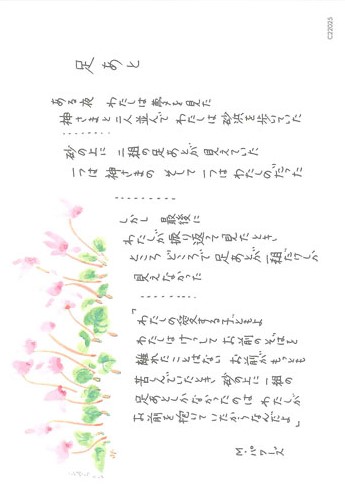 C22025
足あと
ある夜 わたしは夢を見た
神さまと二人並んで わたしは 砂浜を歩いていた
………
砂の上に 二組の足あとが 見えていた
一つは 神さまの そして 一つは わたしのだった
………
しかし 最後に
わたしが 振り返って見たとき
ところどころで 足あとが 一組だけしか
見えなかった
………
「わたしの愛する子どもよ
わたしは けっして お前のそばを
離れたことはない お前が もっとも
苦しんでいたとき 砂の上に 一組の
足あとしかなかったのは わたしが
お前を 抱いていたからなんだよ」
M.パワーズ